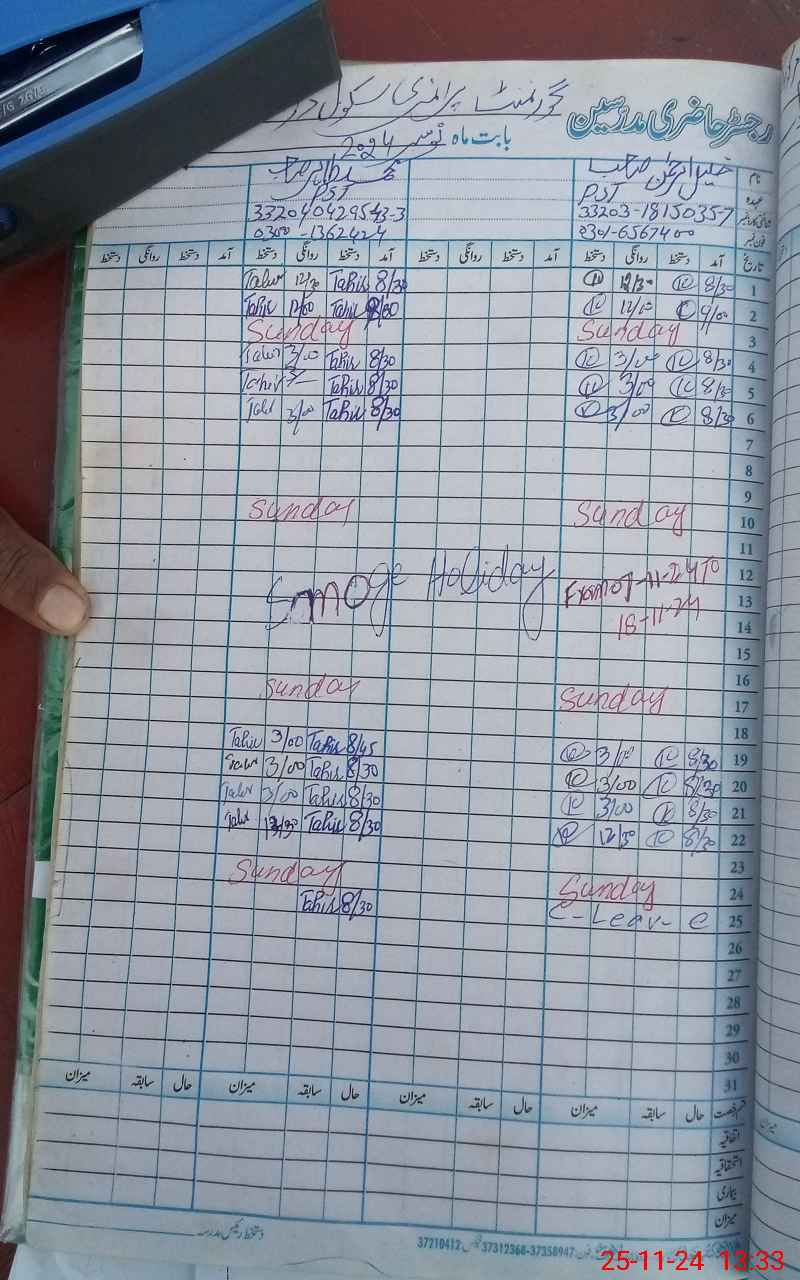 رجسٹر حاضری مدرسین
گورنمنٹ پرائمری سکول
بابت ماہ نومبر 2024
نام
عہدہ PST PST
33203-1815035-7 332040429543-3
فون نمبر 0301-6567400 0300-1362424
تاریخ آمد دستخط روانگی دستخط آمد دستخط روانگی دستخط آمد دستخط روانگی دستخط آمد دستخط روانگی دستخط
1 8/30 12/30 8/30 Tahir 12/30 Tahir
2 9/00 12/00 8/30 Tahir 12/00 Tahir
3 Sunday Sunday
4 8/30 3/00 8/30 Tahir 3/00 Tahir
5 8/30 3/00 8/30 Tahir Tahir
6 8/30 3/00 8/30 Tahir 3/00 Tahir
7
8
9
10 Sunday Sunday
11
12 From 07-11-24 TO
13 Smoge Holiday 18-11-24
14
15
16
17 Sunday Sunday
18
19 8/30 3/00 8/45 Tahir 3/00 Tahir
20 8/30 3/00 8/30 Tahir 3/00 Tahir
21 8/30 3/00 8/30 Tahir 3/00 Tahir
22 8/30 12/30 8/30 Tahir Tahir
23
24 Sunday Sunday
25 C-Leav-e 8/30 Tahir
26
27
28
29
30
31
قسم رخصت حال سابقہ میزان حال سابقہ میزان حال سابقہ میزان حال سابقہ میزان
اتفاقیہ
استحقاقیہ
بیماری
میزان
دستخط رئیس مدرسہ
37358947-37312368 فیکس 37210412
25-11-24 13:33